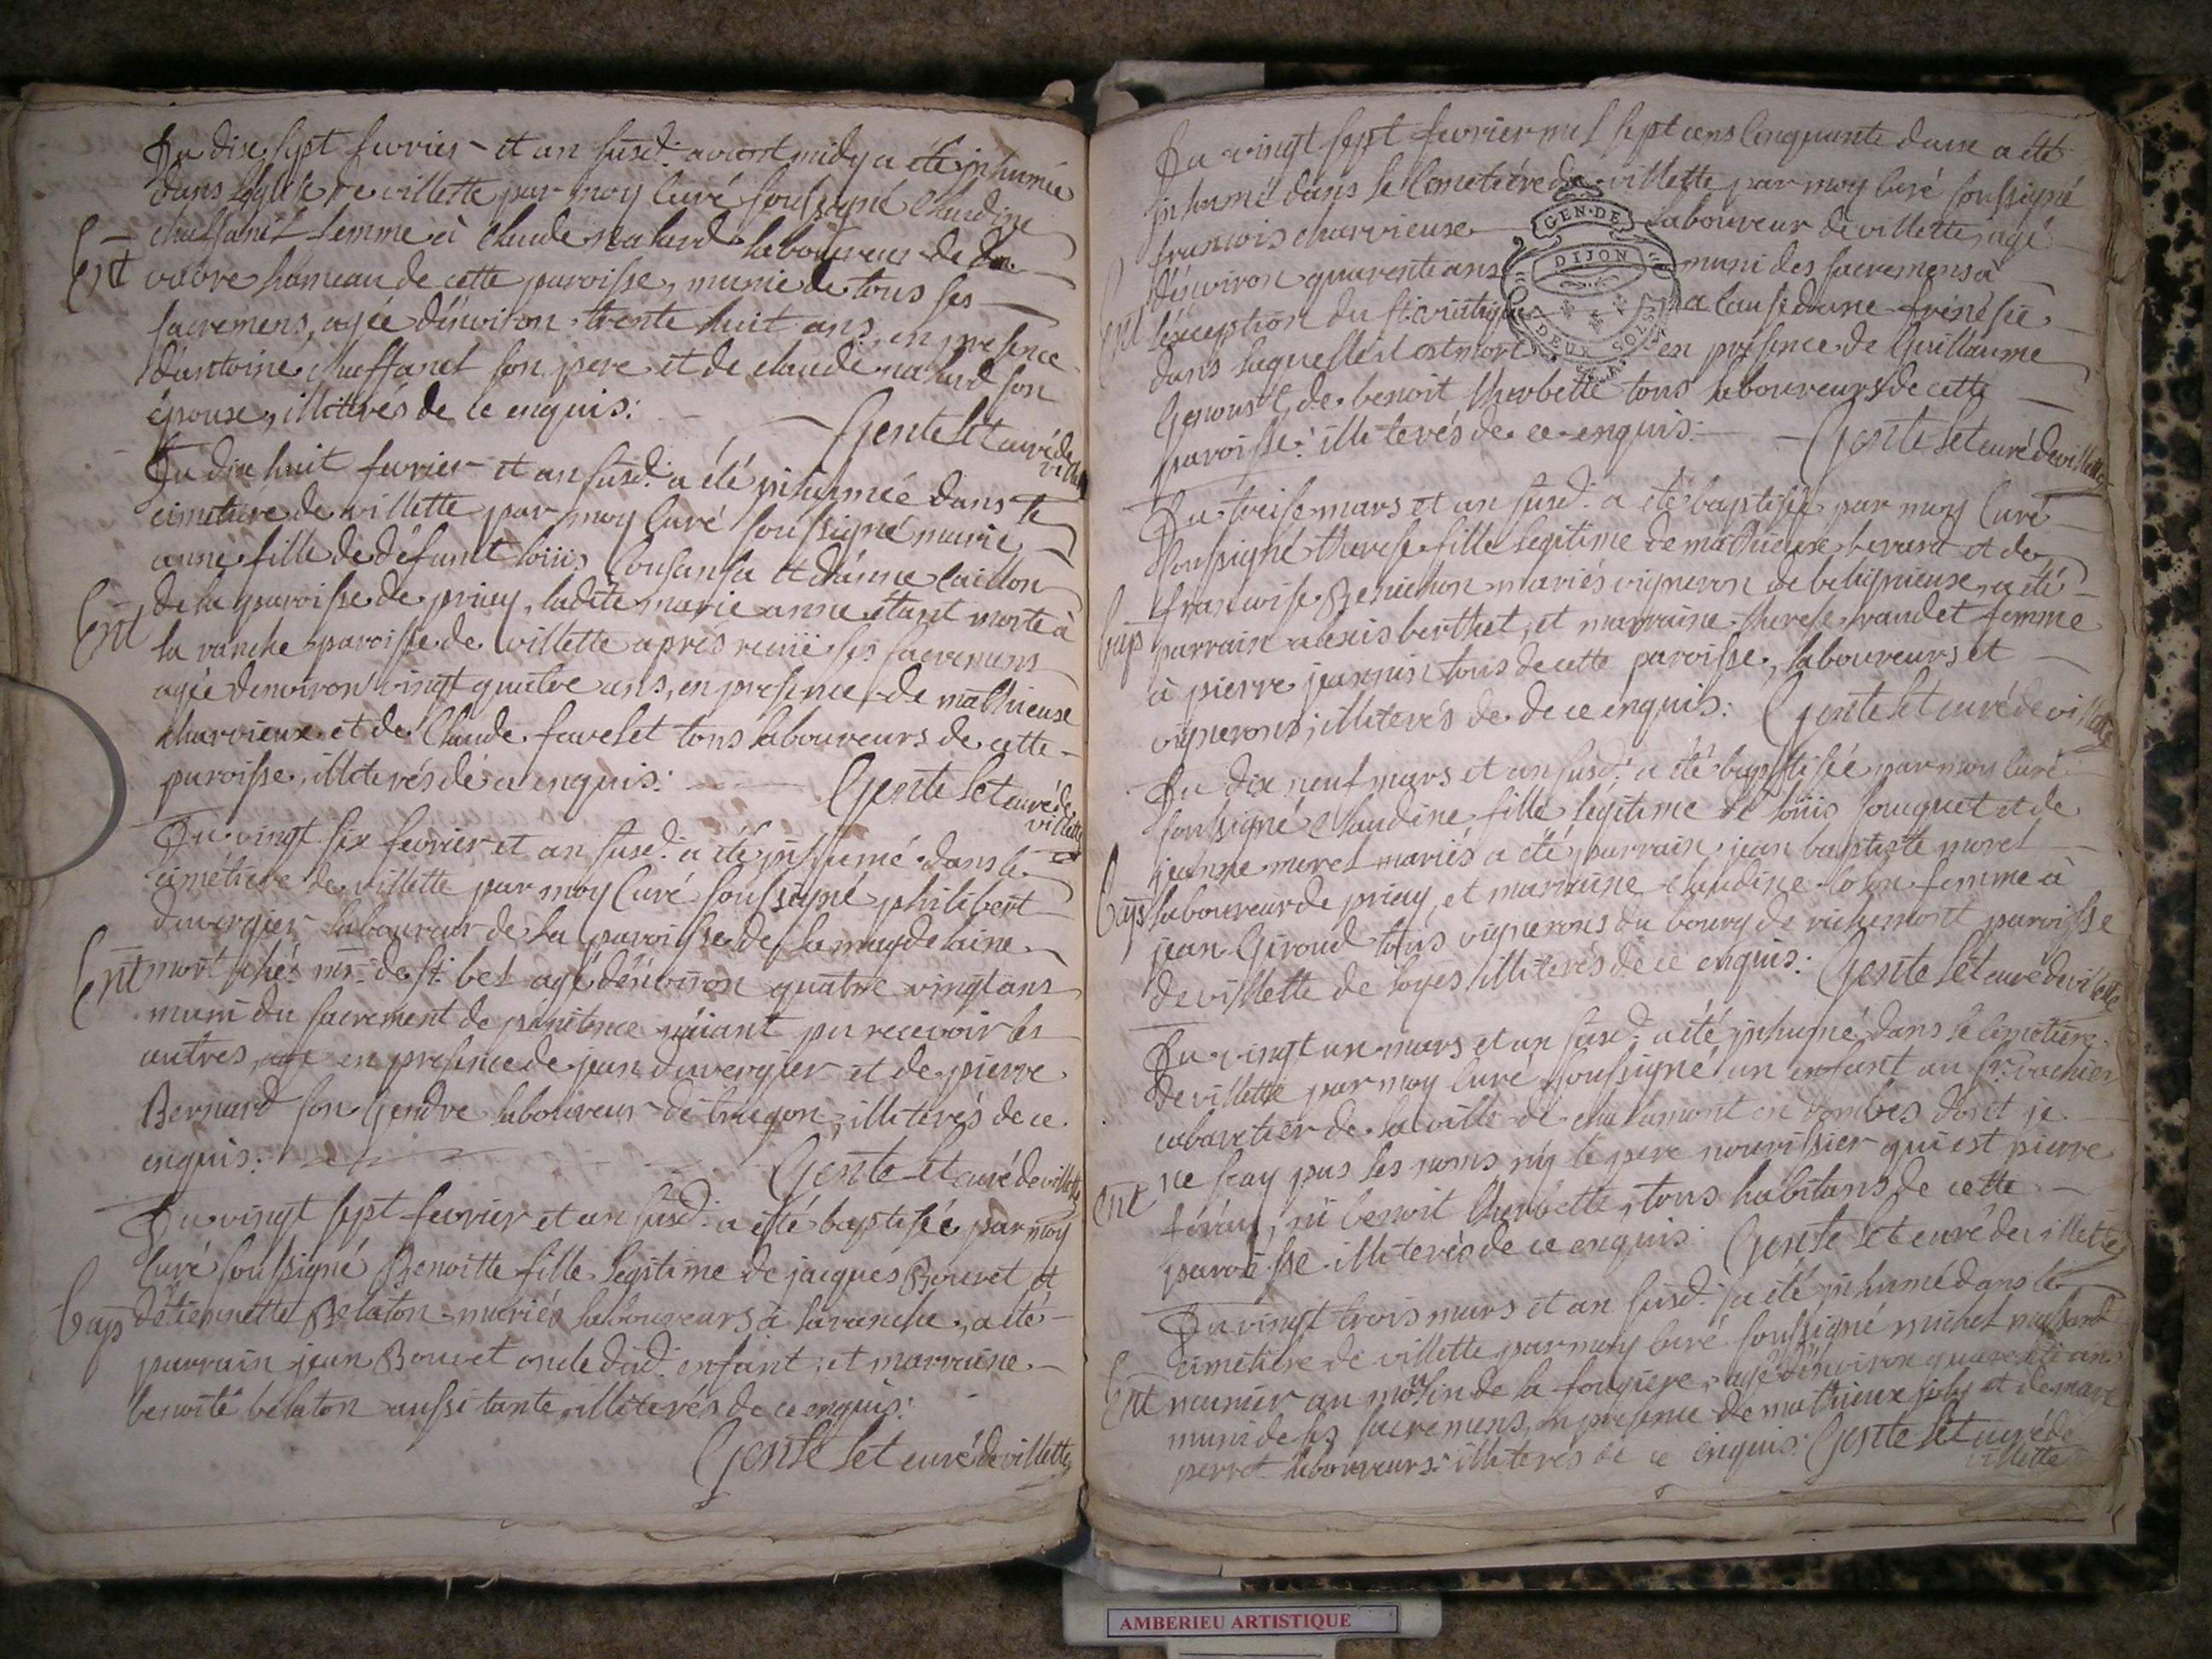 Du dix sept fevrier et an susd. avant midy a été inhumée
dans l'eglise de villette par moy curé soussigné Claudine
chaffanel femme à claude nalard laboureur de
vavre hameau de cette paroisse, munie de tous ses
Ent
sacremens, agée d'environ trente huit ans, en presence
d'antoine chaffanel son pere et de claude nalard son
épouse, illiterés de ce enquis:
Gentelet curé de
villette
Du dix huit fevrier et an susd. a été inhumée dans le
cimetiére de villette par moy curé soussigné marie
anne fille de défunct loüis Consansa et d'anne caillon
de la paroisse de priay, ladite marie anne étant morte à
Ent
la ranche paroisse de villette apres reçüe ses sacremens
agée denviron vingt quatre ans, en presence de mathieux
charvieux et de Claude favelet tous laboureurs de cette
paroisse, illiterés de ce enquis:
Gentelet curé de
villette
Du vingt six fevrier et an susd. a été inhumé dans le
cimétiere de villette par moy curé soussigné philibert
duvergier laboureur de la paroisse de la magdelaine
Ent
mort chés mr. de st. bel agé d'énviron quatre vingt ans
muni du sacrement de pénitence n'aiant pu recevoir les
autres, en presence de jean duvergier et de pierre
Bernard son Gendre laboureur de illiterés de ce
enquis:
Gentelet curé de villette
Du vingt sept fevrier et an susd. a été baptisée par moy
Curé soussigné Benoitte fille legitime de jacques Bouvet et
d'étiennette Belaton mariés laboureurs à la ranche, a été
Bap
parrain jean Bouvet oncle dud. enfant, et marraine
benoite bélaton aussi tante, illiterés de ce enquis:
Gentelet curé de villette
Du vingt sept fevrier mil sept cens cinquante deux a été
inhumé dans le Cimetiére de villette par moy curé soussigné
francois charvieux laboureur de villette, agé
d'environ quarente ans muni des sacremens à
Ent
l'exception du st. viatique a cause d'une frénésie
dans laquelle il est mort en présence de Guillaume
Genoust, de benoit therbette tous laboureurs de cette
paroisse: illiterés de ce enquis:
Gentelet curé de villette
GEN·DE
DIJON
DEUX SOLS
Du treise mars et an susd. a été baptisée par moy Curé
soussigné therese fille legitime de mathieux berard et de
francoise Benichon mariés vigneron de beligneux, a été
Bap
parrain alexis berthet, et marraine therese randet femme
à pierre jeannin tous de cette paroisse, laboureurs et
vignerons, illiterés de de ce enquis:
Gentelet curé de villette
Du dix neuf mars et an susd. a été baptisée par moy curé
soussigné Claudine fille légitime de loüis fouquet et de
jeanne morel mariés a été parrain jean baptiste morel
Bap
laboureur de priay, et marraine claudine femme à
jean Giroud tous vignerons du bourg de richemont paroisse
de villette de loyes illiterés de ce enquis:
Gentelet curé de villette
Du vingt un mars et an susd. a été inhumé dans le cimetiére
de villette par moy curé soussigné un enfant au sr. vachier
cabaretier de la ville de chalamont en dombes dont je
ne sçay pas les noms ny le pere nourissier qui est pierre
Ent
ny benoit therbette, tous habitans de cette
paroisse illiterés de ce enquis
Gentelet curé de villette
Du vingt trois mars et an susd. a été inhumé dans le
cimétiere de villette par moy curé soussigné michel
Ent
meunier au moulin de la fougiere, agé d'environ quarente ans
muni de ses sacremens, en presence de mathieux joly et de
perret laboureurs: illiterés de ce enquis:
Gentelet curé de
villette
AMBERIEU ARTISTIQUE